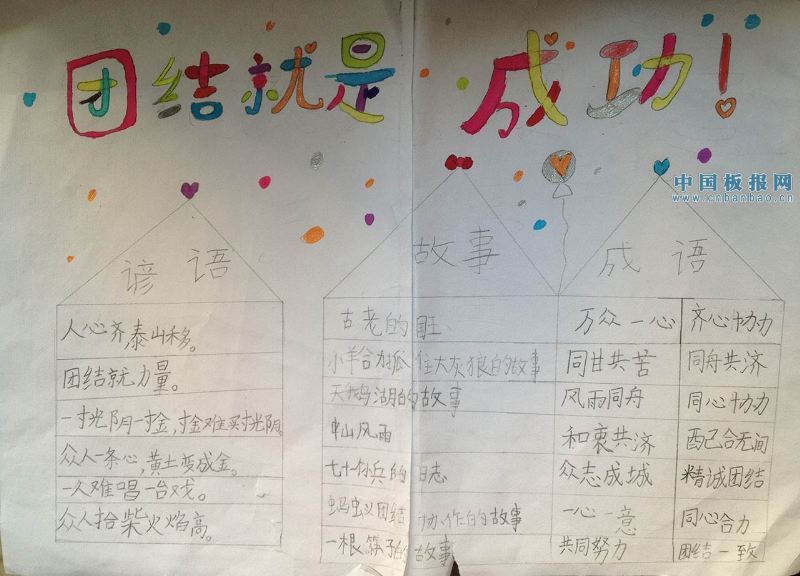 团结就是成功!
中国板报网
www.cnbanbao.cn
谚语
故事
成语
人心齐,泰山移。
团结就力量。
一寸光阴一寸金,寸金难买寸光阴。
众人一条心,黄土变成金。
一人难唱一台戏。
众人拾柴火焰高。
古老的
小羊合力抓住大灰狼的故事
天鹅湖的故事
山风雨
七十 兵的日志
蚂蚁团结协作的故事
一根筷子的故事
万众一心 齐心协力
同甘共苦 同舟共济
风雨同舟 同心协力
和衷共济 配合无间
众志成城 精诚团结
一心一意 同心合力
共同努力 团结一致